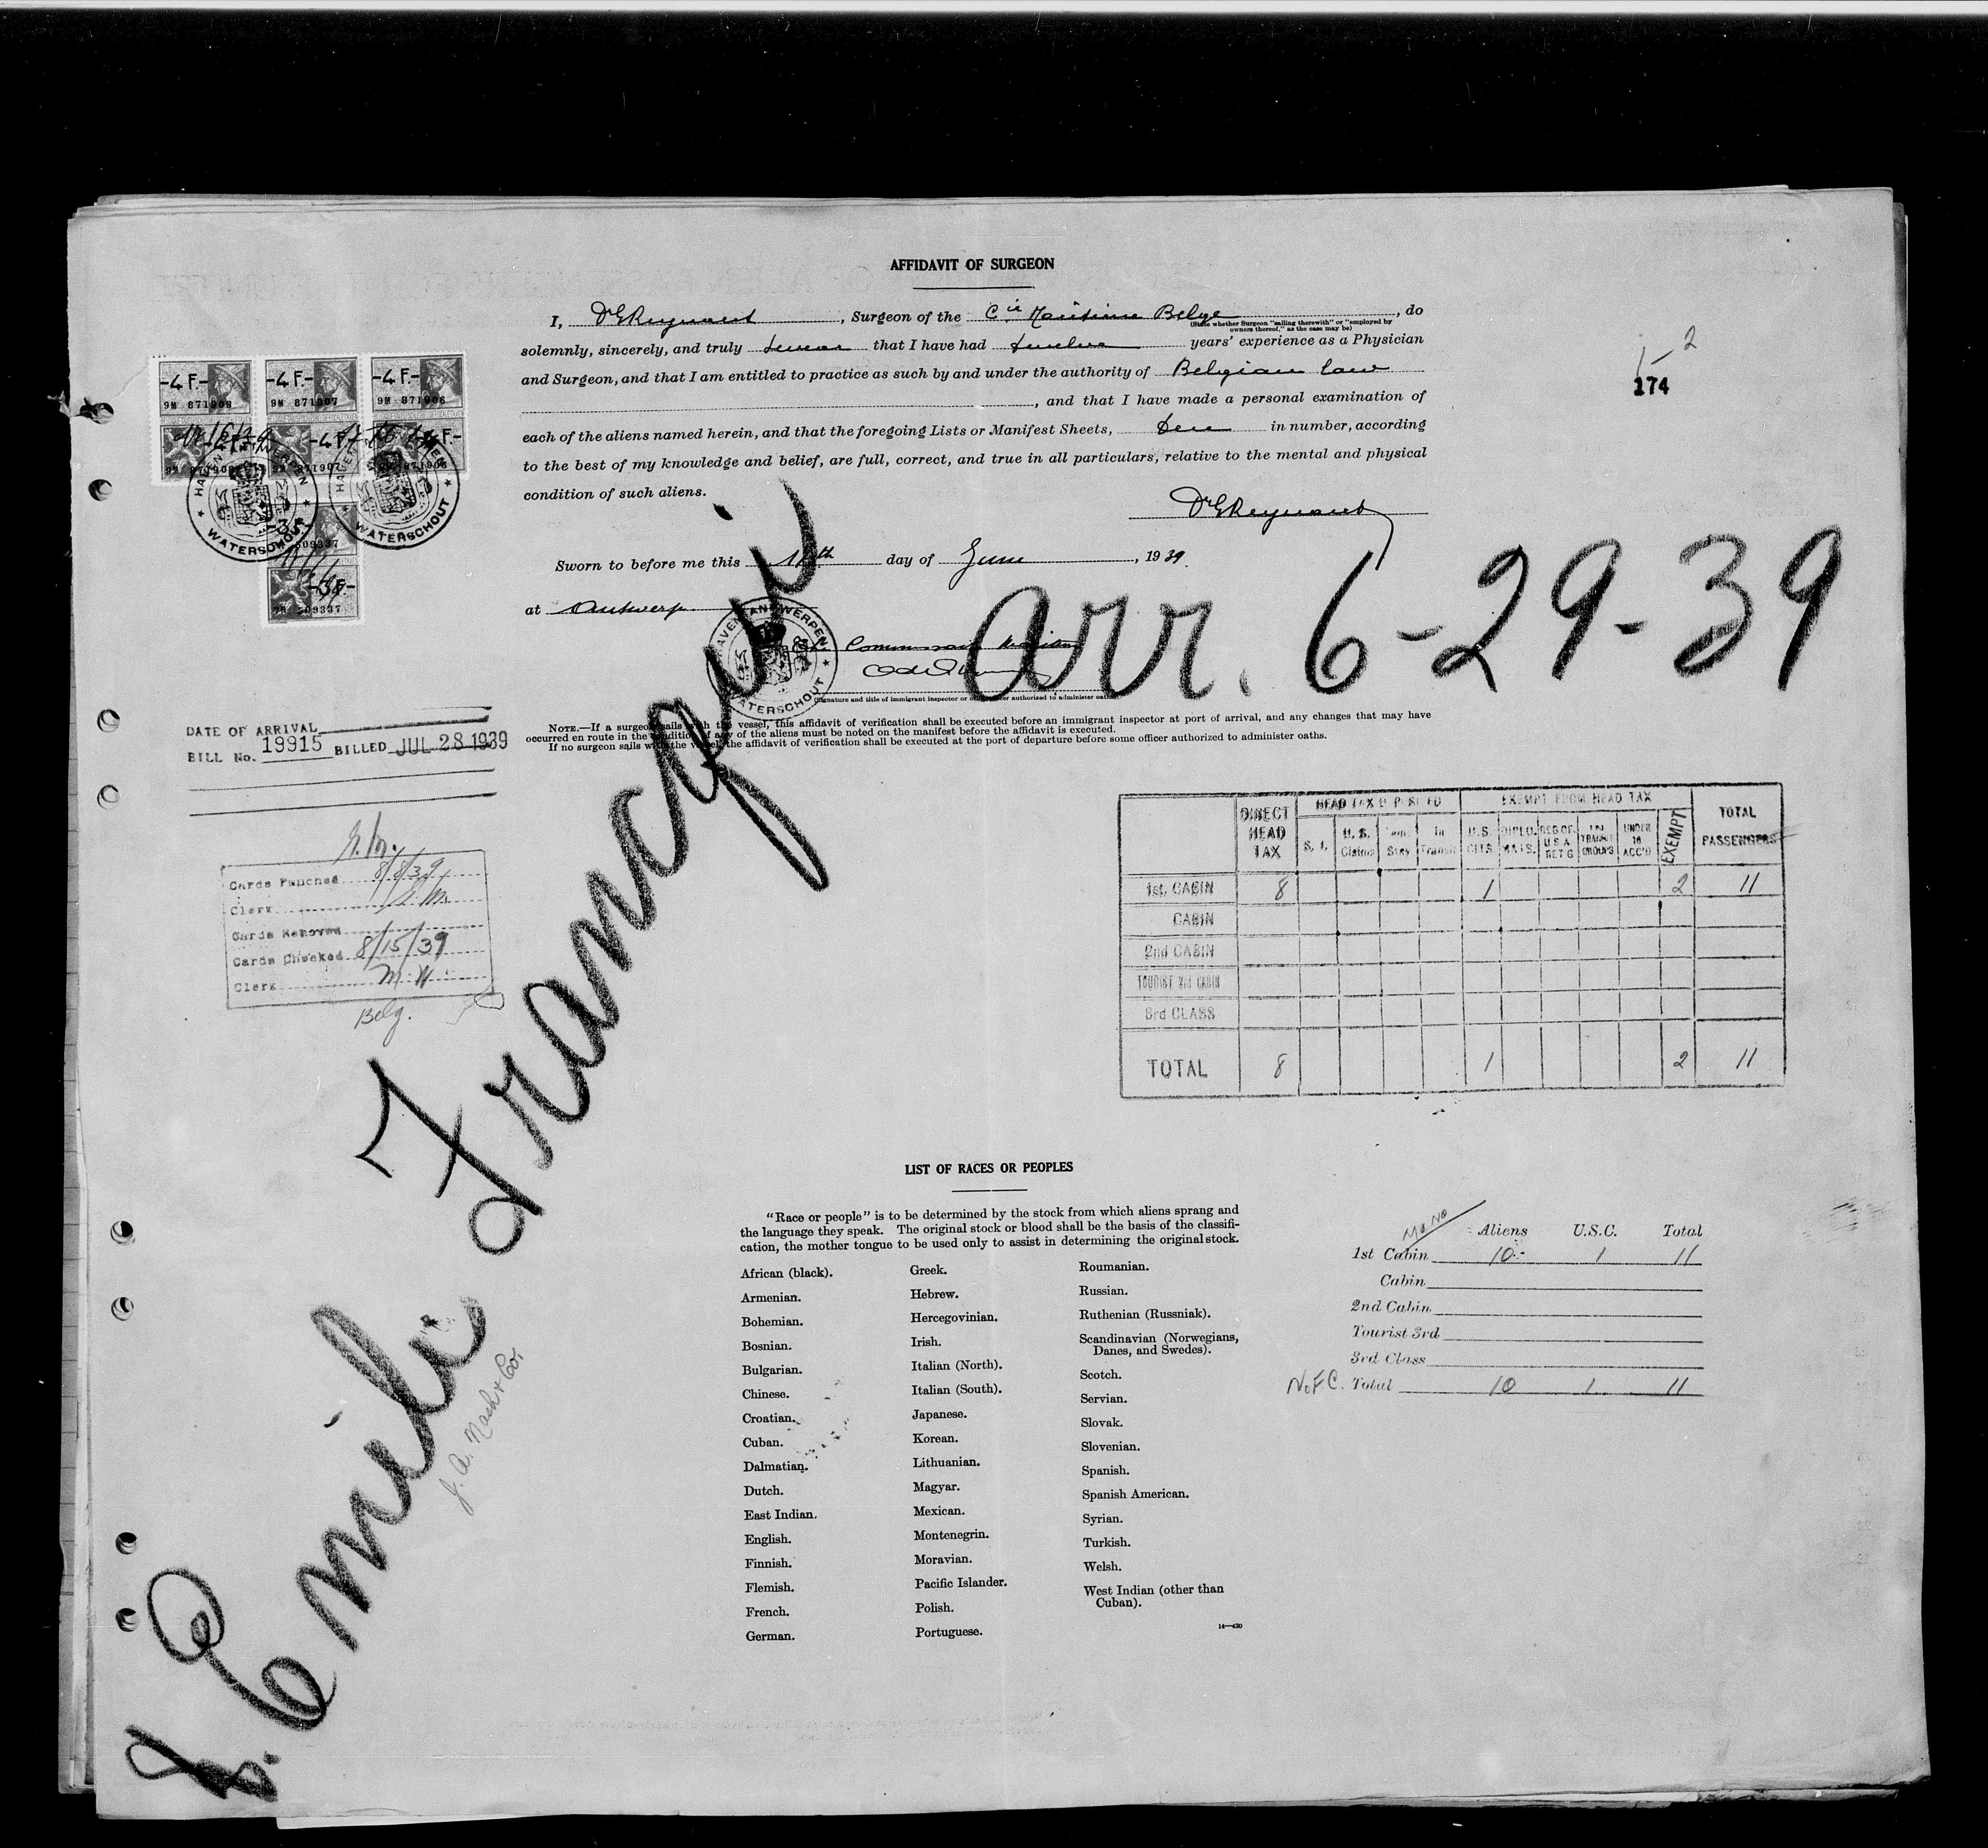 AFFIDAVIT OF SURGEON
I, Dr , Surgeon of the Cie Maritime Belge , do
(State whether Surgeon "sailing therewith" or "employed by
owners thereof," as the case may be)
solemnly, sincerely, and truly swear that I have had twelve years' experience as a Physician
and Surgeon, and that I am entitled to practice as such by and under the authority of Belgian law
, and that I have made a personal examination of
each of the aliens named herein, and that the foregoing Lists or Manifest Sheets, in number, according
to the best of my knowledge and belief, are full, correct, and true in all particulars, relative to the mental and physical
condition of such aliens.
Sworn to before me this th day of June , 1939.
at Antwerp
HAVEN ANTWERPEN
WATERSCHOUT
(Signature and title of immigrant inspector or other officer authorized to administer oaths)
NOTE.—If a surgeon sails with the vessel, this affidavit of verification shall be executed before an immigrant inspector at port of arrival, and any changes that may have
occurred en route in the condition of any of the aliens must be noted on the manifest before the affidavit is executed.
If no surgeon sails with the vessel, the affidavit of verification shall be executed at the port of departure before some officer authorized to administer oaths.
2
174
arr. 6-29-39
-4 F.- -4 F.- -4 F.-
9M 871908 9M 871907 9M 871906
HAVEN ANTWERPEN
WATERSCHOUT
HAVEN ANTWERPEN
WATERSCHOUT
509337
DATE OF ARRIVAL
BILL No. 19915 BILLED JUL 28 1939
Cards Punched 8/8/39
Clerk
Cards Removed
Cards Checked 8/15/39
Clerk
Belg.
S. Emile Francqui
J. A. Nash & Co.
DIRECT HEAD TAX HEAD TAX DEPOSITED EXEMPT FROM HEAD TAX TOTAL PASSENGERS
S. I. U. S. Claims Temp. Stay In Transit U.S. CITS. DIPLO-MATS. RES OF U S A RET'G IN TRANSIT GROUPS UNDER 16 ACC'D EXEMPT
1st. CABIN 8 1 2 11
CABIN
2nd CABIN
TOURIST 3rd CABIN
3rd CLASS
TOTAL 8 1 2 11
LIST OF RACES OR PEOPLES
"Race or people" is to be determined by the stock from which aliens sprang and
the language they speak. The original stock or blood shall be the basis of the classifi-
cation, the mother tongue to be used only to assist in determining the original stock.
African (black).
Armenian.
Bohemian.
Bosnian.
Bulgarian.
Chinese.
Croatian.
Cuban.
Dalmatian.
Dutch.
East Indian.
English.
Finnish.
Flemish.
French.
German.
Greek.
Hebrew.
Hercegovinian.
Irish.
Italian (North).
Italian (South).
Japanese.
Korean.
Lithuanian.
Magyar.
Mexican.
Montenegrin.
Moravian.
Pacific Islander.
Polish.
Portuguese.
Roumanian.
Russian.
Ruthenian (Russniak).
Scandinavian (Norwegians,
Danes, and Swedes).
Scotch.
Servian.
Slovak.
Slovenian.
Spanish.
Spanish American.
Syrian.
Turkish.
Welsh.
West Indian (other than
Cuban).
14—430
Aliens U.S.C. Total
1st Cabin 10 1 11
Cabin
2nd Cabin
Tourist 3rd
3rd Class
N.F.C. Total 10 1 11